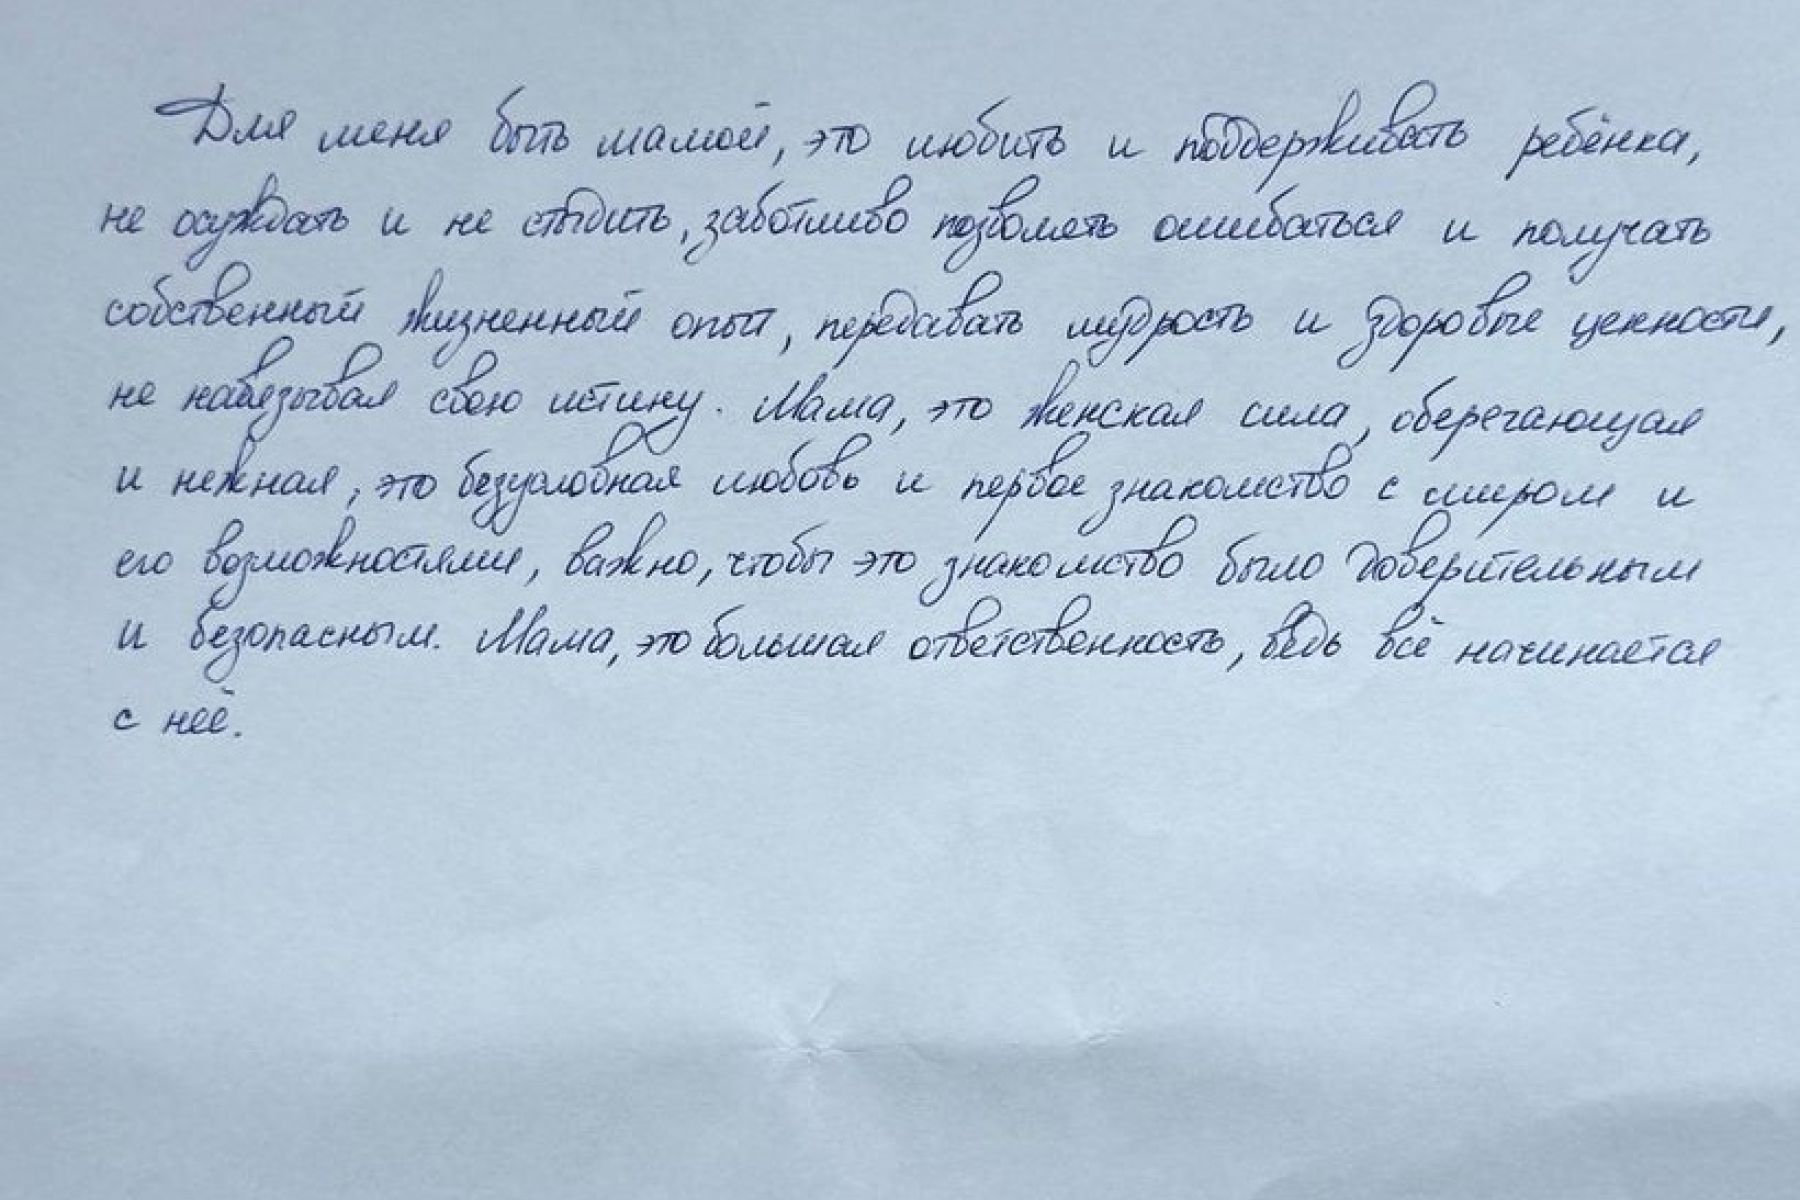 Для меня быть мамой, это любить и поддерживать ребёнка,
не осуждать и не стыдить, заботливо позволять ошибаться и получать
собственный жизненный опыт, передавать мудрость и здоровые ценности,
не навязывая свою истину. Мама, это женская сила, оберегающая
и нежная, это безусловная любовь и первое знакомство с миром и
его возможностями, важно, чтобы это знакомство было доверительным
и безопасным. Мама, это большая ответственность, ведь всё начинается
с неё.